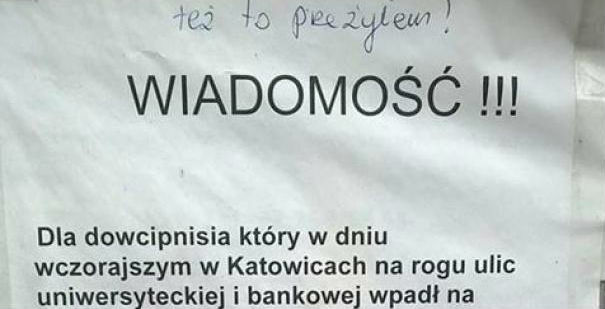 też to przeżyłem!
WIADOMOŚĆ !!!
Dla dowcipnisia który w dniu
wczorajszym w Katowicach na rogu ulic
uniwersyteckiej i bankowej wpadł na